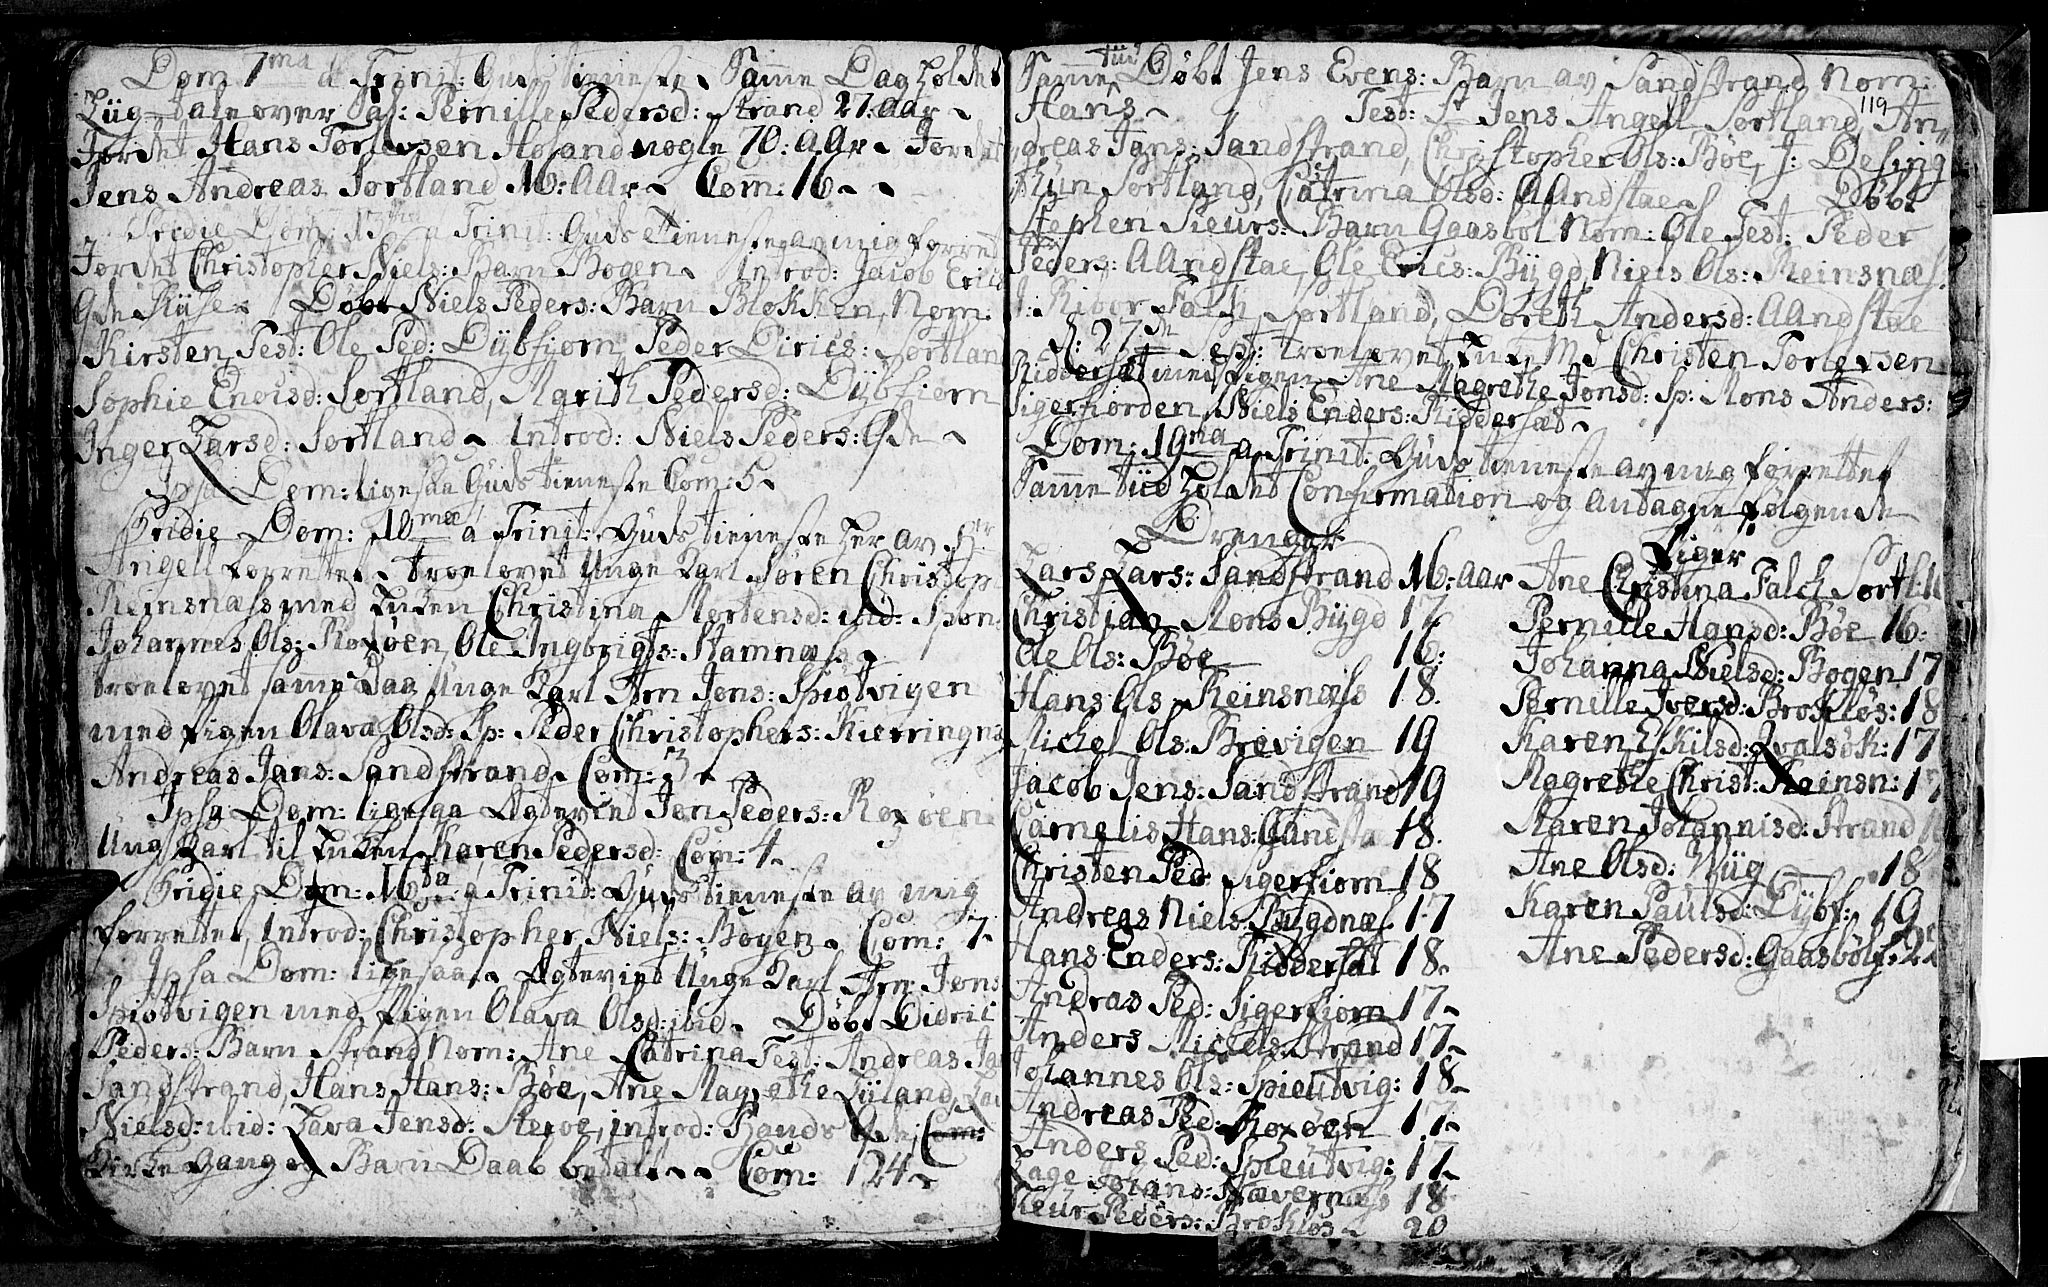 Dom 7ma a Trinit: Guds tieneste Samme Dag holdet
Liig-tale over Sal: Pernille Pedersd: Strand 27: aar
Jordet Hans Torlevsen Holand nogle 70: AAr Jordet
Jens Andreas Sortland 16: AAr Com: 16
Fridie Dom: a Trinit: Guds Tieneste av mig forret
Jordet Christopher Niels: Barn Bogen Introd: Jacob Erics
Qde Døbt Niels Peders: Barn Blokken, Nom:
Kirsten, Test: Ole Ped: Dybfiorn, Peder Dirics: Sortland
Sophie Enoisd: Sortland, Marith Pedersd: Dybfiorn
Inger Larsd: Sortland Introd: Niels Peders: Qde
Ipsa Dom: ligesaa Guds tieneste Com: 5
Fridie Dom: 10mæ a Trinit: Guds tieneste her av Hr
Angell forrettet troelovet Unge Karl Søren Christop
Reinsnæss med Enken Christina Mortensd: ibid: Spon:
Johannes Ols: Roxøen, Ole Ingbrigts: Stamnæss
troelovet samme Dag Unge Karl Arn Jens: Spiotvigen
med Pigen Olava Olsd: Sp: Peder Christophers: Kierringnæs
Andreas Jans: Sandstrand Com: 3
Ipsa Dom: ligesaa Ægteviet Jon Peders: Roxøen
Ung Karl til Enken Karen Pedersd: Com: 4
Fridie Dom: 16ta a Trinit: Guds tieneste av mig
forrettet, Introd: Christopher Niels: Bogen Com: 7
Ipsa Dom: ligesaa Ægteviet Unge Karl Arn Jens
Spiotvigen med Pigen Olava Olsd: ibid Døbt Didric
Peders: Barn Strand Nom: Ane Catrina Test: Andreas Jans
Sandstrand, Hans Hans: Bøe, Ane Magrethe
Nielsd: ibid: Lava Jensd: Steroe, introd: Qde, Com:
Kirke gang og Barn Daab betalt Com: 124
119
Samme tiid Døbt Jens Evens: Barn av Sandstrand Nom:
Hans Test: Sr Jens Angell Sortland, An
dreas Jans: Sandstrand, Christopher Ols: Bøe, J:
Sortland, Catrina Olsd: AAndstae Døbt
Stephen Sieurs: Barn Gaasbøl Nom: Ole Test: Peder
Peders: AAndstae, Ole Erics: Bygd, Niels Ols: Reinsnæs:
J: Falch Sortland, Doreth Andersd: AAndstae
d: 27de Sept: troelovet Christen Torlevsen
Riddersæt med Pigen Ane Magrethe Jonsd: Sp: Mons Anders:
Sigerfiorden, Niels Enders: Riddersæt
Dom: 19ma a Trinit: Guds tieneste av mig forrettet
Samme tiid holdet Confirmation og antagne følgende
Drenger
Lars Lars: Sandstrand 16: aar
Christian Mons Bygd 17
Ole Ols: Bøe 16:
Hans Ols Reinsnæss 18
Michel Ols: Brevigen 19
Jacob Jens: Sandstrand 19
Cornelis Hans: 18
Christen Ped: Sigerfiorn 18
Andreas Niels: Bygdnæs 17
Hans Enders: Riddersæt 18
Andras Ped: Sigerfiorn 17
Anders Michels: Strand 17
Johannes Ols: Spieutvig: 18
Andreas Ped: Roxøen 17
Anders Ped: Spieutvig: 17
Lage Johans: Nævernæs 18
Sieur Peders: Brokløs 20
Piger
Ane Christina Falch Sortl:
Pernille Hansd: Bøe 16:
Johanna Nielsd: Bogen 17
Pernille Iversd: Brokløs: 18
Karen Eskilsd: Qvalsøk: 17
Magrethe Christ: Reinsn: 17
Maren Johannisd: Strand
Ane Olsd: Wiig 18
Karen Paulsd: Dybf: 19
Ane Pedersd: Gaasbøl: 22